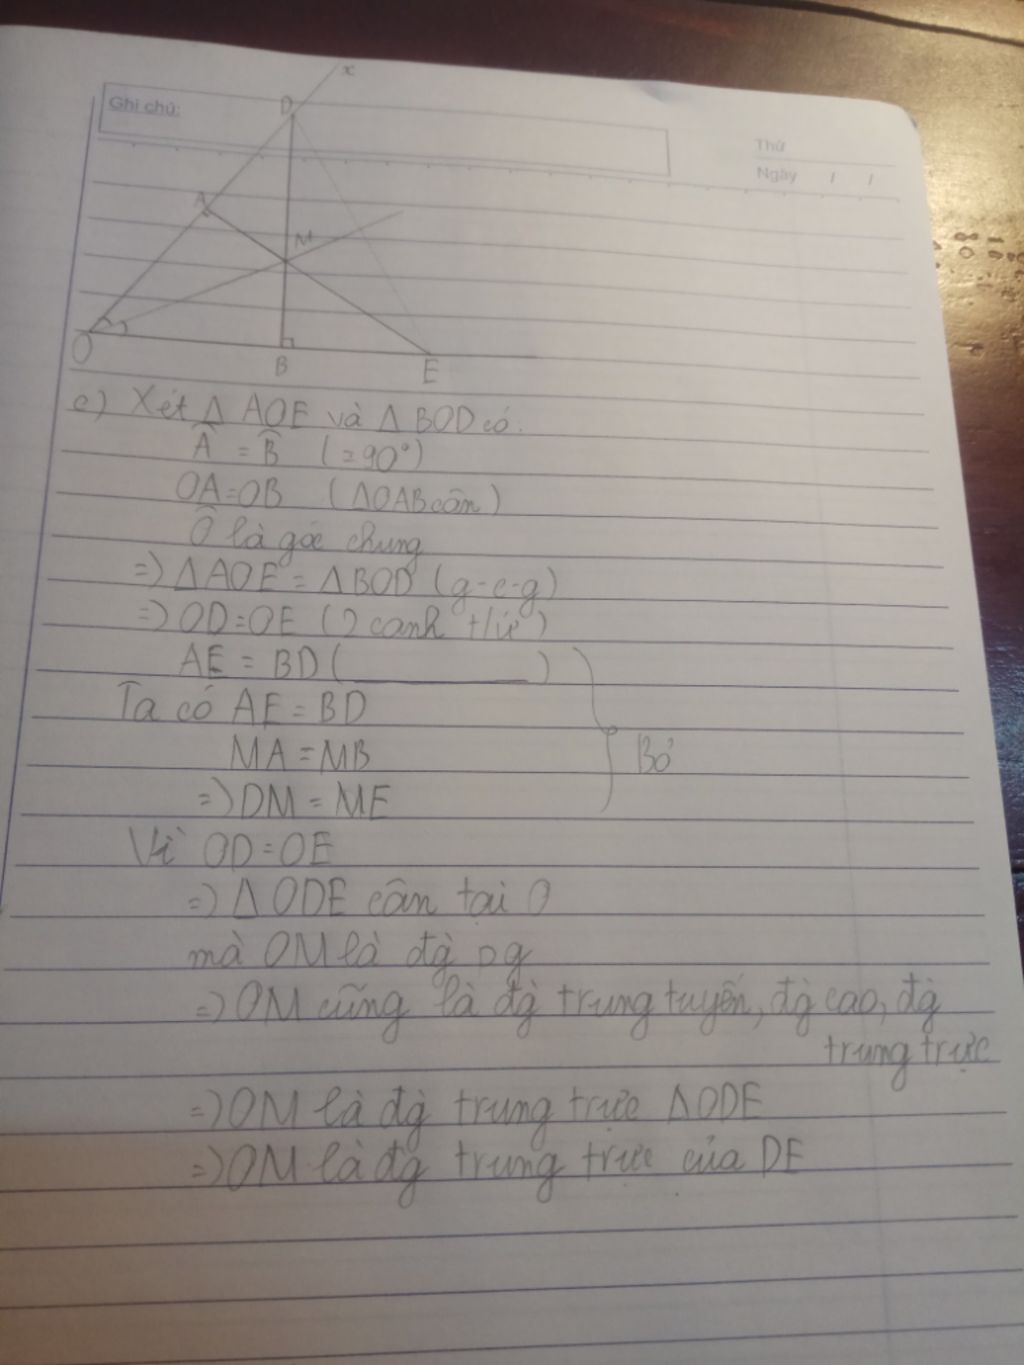 x
D
Ghi chú:
Thứ
Ngày / /
A
M
O
B
E
c) Xét Δ AOE và Δ BOD có:
Â = B̂ (=90°)
OA=OB (ΔOAB cân)
Ô là góc chung
=) ΔAOE = ΔBOD (g-c-g)
=) OD=OE (2 cạnh t/ứ)
AE = BD ( )
Ta có AE = BD
MA = MB
Bỏ
=) DM = ME
Vì OD=OE
=) Δ ODE cân tại O
mà OM là đg̀ pg
=) OM cũng là đg̀ trung tuyến, đg̀ cao, đg̀
trung trực
=) OM là đg̀ trung trực ΔODE
=) OM là đg̀ trung trực của DE